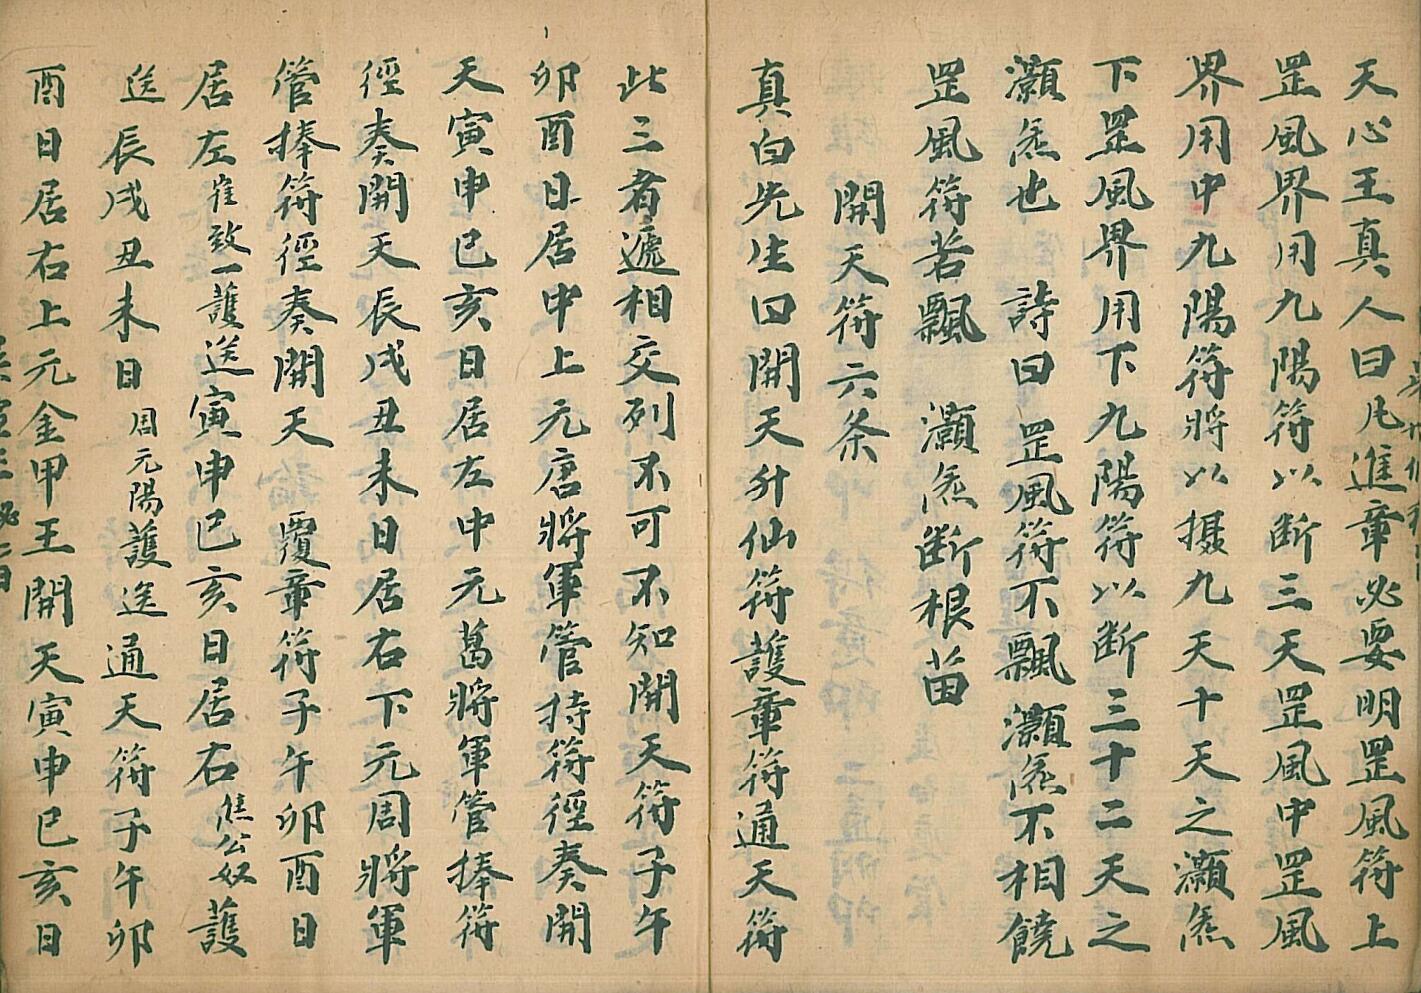 天心王真人曰凡進章必要明罡風符上
罡風界用九陽符以斷三天罡風中罡風
界用中九陽符將以摄九天十天之灝炁
下罡風界用下九陽符以斷三十二天之
灝炁也　詩曰　罡風符不飄灝炁不相饒
罡風符若飄　灝炁斷根苗
開天符六条
真白先生曰開天升仙符護章符通天符
此三者遞相交列不可不知開天符子午
卯酉日居中上元唐將軍管持符徑奏開
天寅申巳亥日居左中元葛將軍管捧符
徑奏開天辰戌丑未日居右下元周將軍
管捧符徑奏開天　覆章符子午卯酉日
居左崔致一護送寅申巳亥日居右焦公奴護
送辰戌丑未日周元陽護送通天符子午卯
酉日居右上元金甲王開天寅申巳亥日